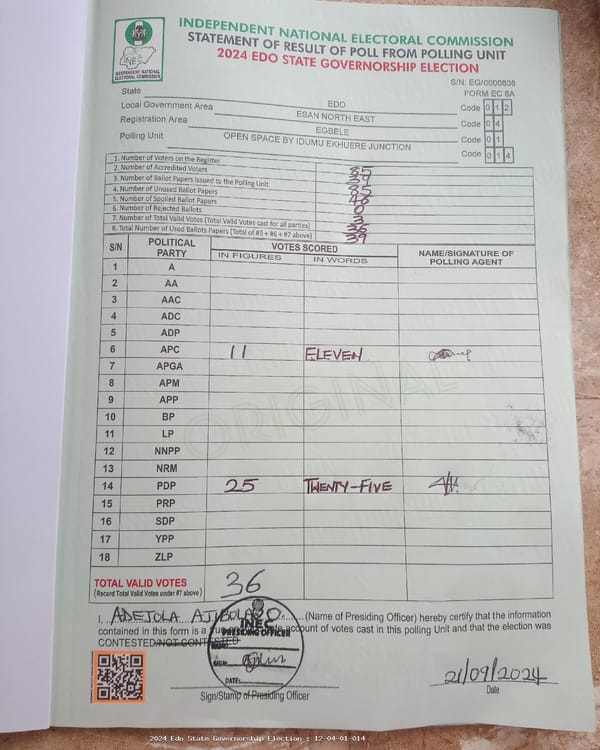 INEC
INDEPENDENT NATIONAL ELECTORAL COMMISSION
INDEPENDENT NATIONAL ELECTORAL COMMISSION
STATEMENT OF RESULT OF POLL FROM POLLING UNIT
2024 EDO STATE GOVERNORSHIP ELECTION
S/N: EG/0000808
FORM EC 8A
State EDO Code 0 1 2
Local Government Area ESAN NORTH EAST Code 0 4
Registration Area EGBELE Code 0 1
Polling Unit OPEN SPACE BY IDUMU EKHUERE JUNCTION Code 0 1 4
1. Number of Voters on the Register 85
2. Number of Accredited Voters 39
3. Number of Ballot Papers Issued to the Polling Unit 85
4. Number of Unused Ballot Papers 46
5. Number of Spoiled Ballot Papers 0
6. Number of Rejected Ballots 3
7. Number of Total Valid Votes (Total Valid Votes cast for all parties) 36
8. Total Number of Used Ballots Papers (Total of #5 + #6 + #7 above) 39
S/N POLITICAL PARTY VOTES SCORED NAME/SIGNATURE OF POLLING AGENT
IN FIGURES IN WORDS
1 A
2 AA
3 AAC
4 ADC
5 ADP
6 APC 11 ELEVEN
7 APGA
8 APM
9 APP
10 BP
11 LP
12 NNPP
13 NRM
14 PDP 25 TWENTY-FIVE
15 PRP
16 SDP
17 YPP
18 ZLP
ORIGINAL
TOTAL VALID VOTES 36
(Record Total Valid Votes under #7 above)
I, ADEJOLA AJIBOLA O. (Name of Presiding Officer) hereby certify that the information
contained in this form is a account of votes cast in this polling Unit and that the election was
CONTESTED/NOT CONTESTED
INEC
PRESIDING OFFICER
SIGN:
DATE:
Sign/Stamp of Presiding Officer
21/09/2024
Date
2024 Edo State Governorship Election : 12-04-01-014